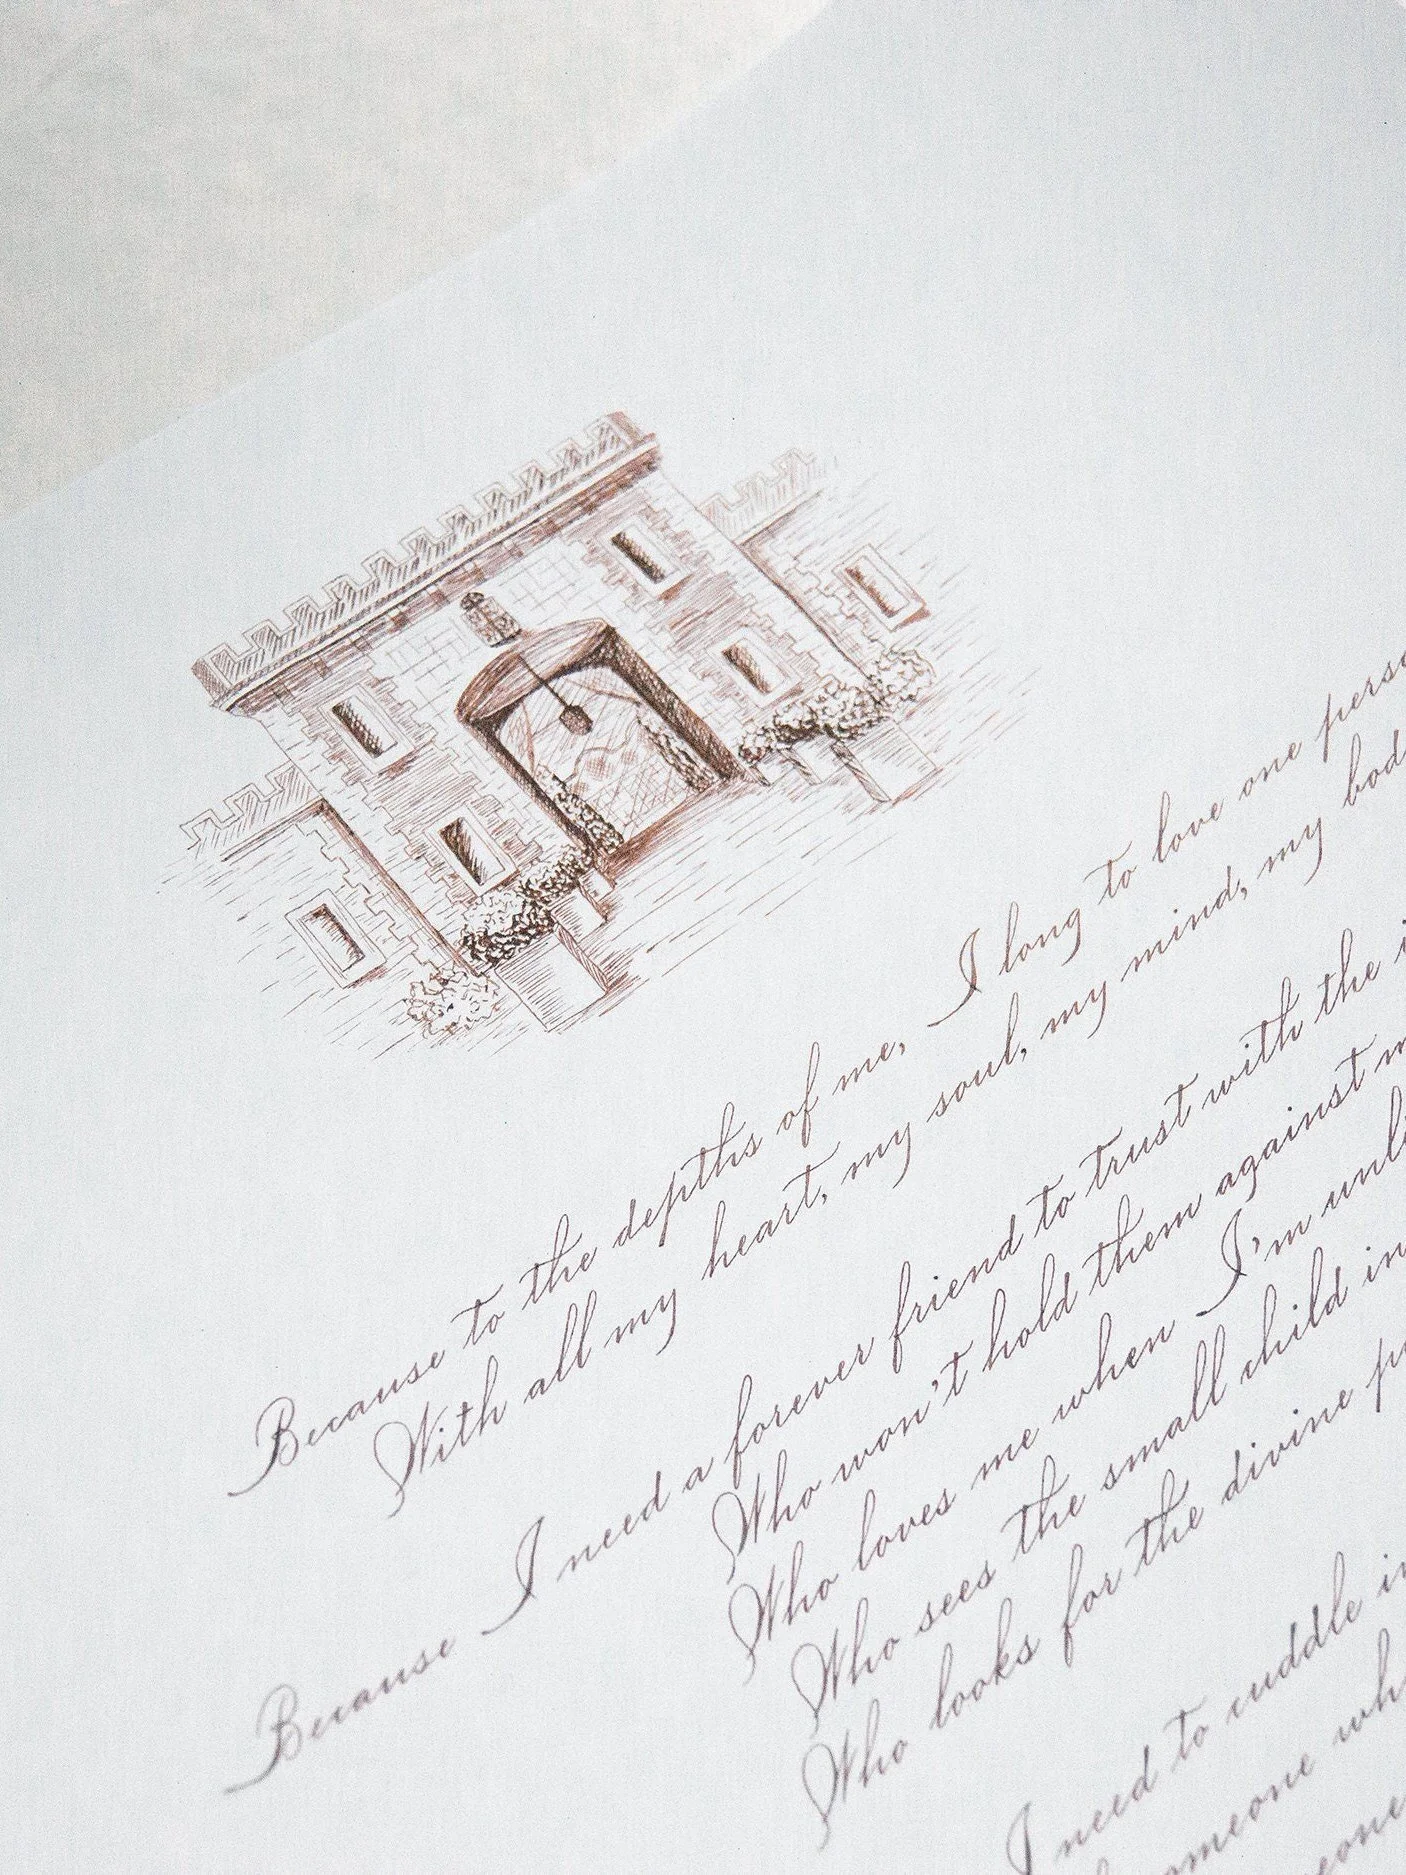 Because to the depths of me, I long to love one
With all my heart, my soul, my mind, my
Because I need a forever friend to trust with the
Who won't hold them against
Who loves me when I'm
Who sees the small child in
Who looks for the divine
I need to cuddle
someone